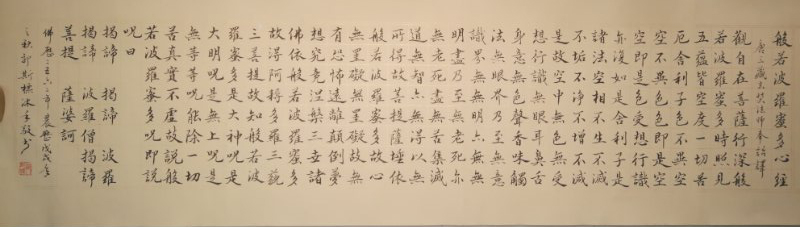 般若波羅蜜多心經
唐三藏玄奘法師奉詔譯
觀自在菩薩行深般
若波羅蜜多時照見
五蘊皆空度一切苦
厄舍利子色不異空
空不異色色即是空
空即是色受想行識
亦復如是舍利子是
諸法空相不生不滅
不垢不淨不增不減
是故空中無色無受
想行識無眼耳鼻舌
身意無色聲香味觸
法無眼界乃至無意
識界無無明亦無無
明盡乃至無老死亦
無老死盡無苦集滅
道無智亦無得以無
所得故菩提薩埵依
般若波羅蜜多故心
無罣礙無罣礙故無
有恐怖遠離顛倒夢
想究竟涅槃三世諸
佛依般若波羅蜜多
故得阿耨多羅三藐
三菩提故知般若波
羅蜜多是大神呪是
大明呪是無上呪是
無等等呪能除一切
苦真實不虛故說般
若波羅蜜多呪即說
呪曰
揭諦 揭諦 波羅
揭諦 波羅僧揭諦
菩提 薩婆訶
佛曆二五六二年戊戌年
之秋郭斯敬書